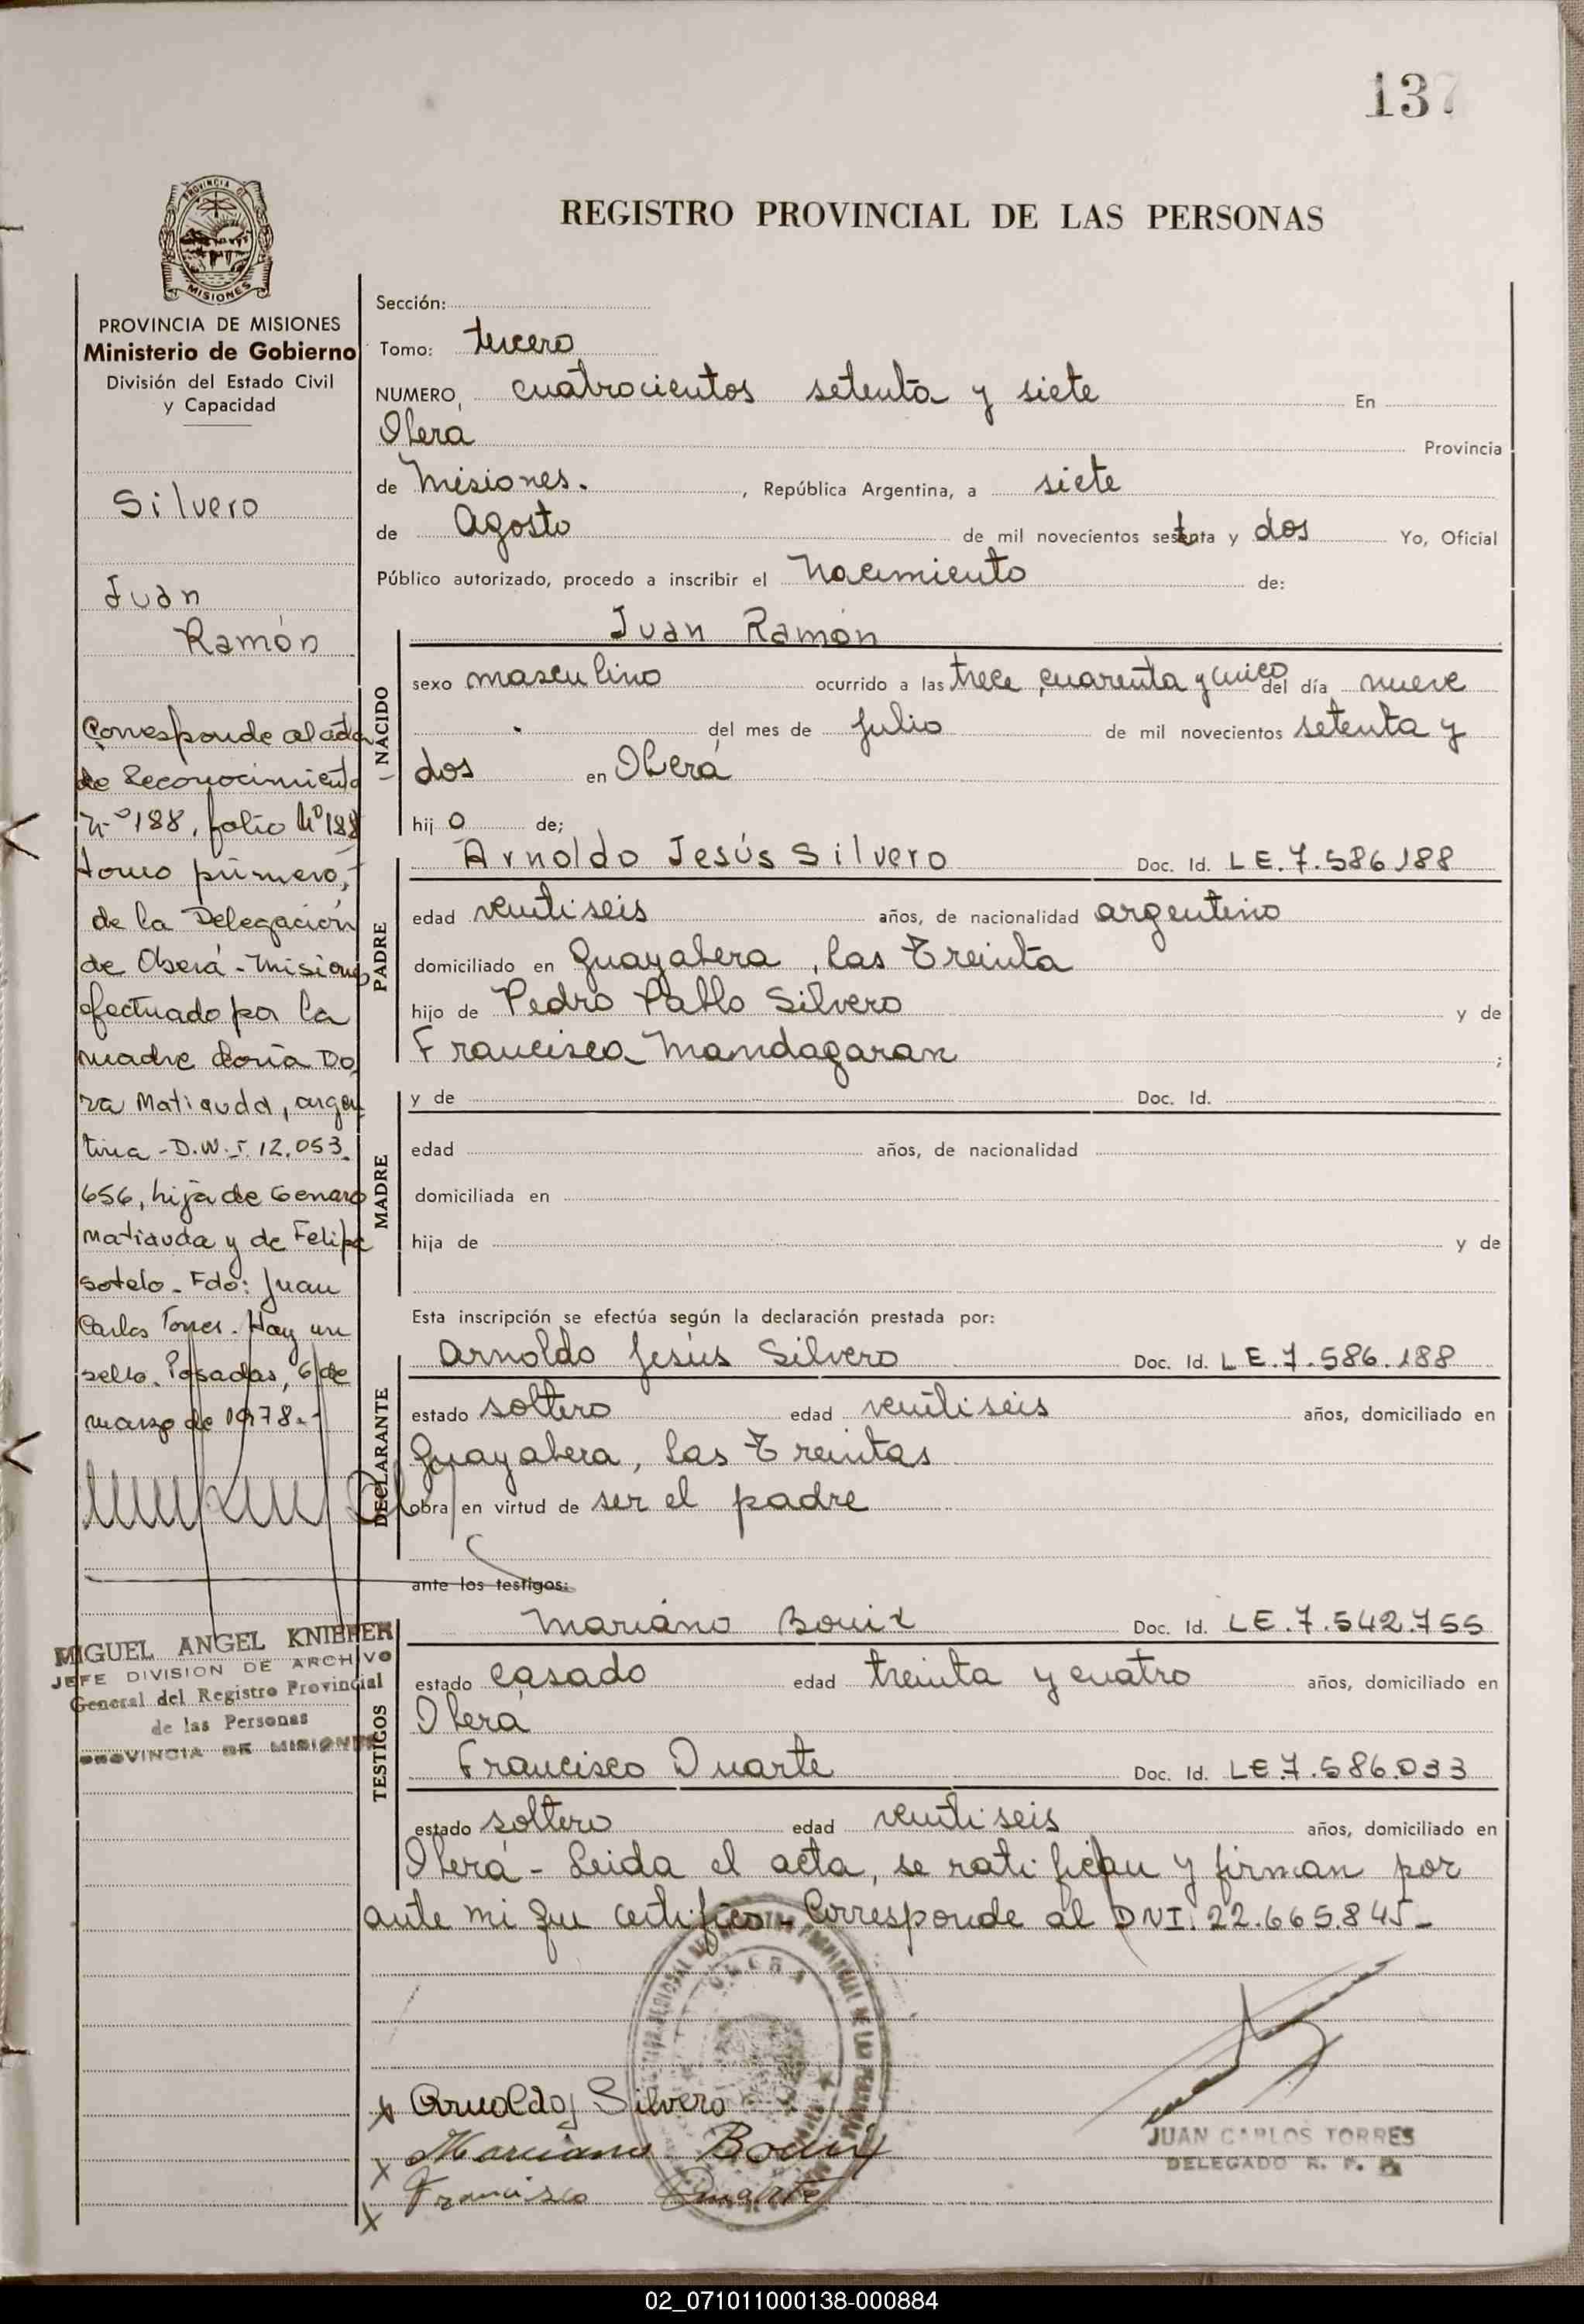 137
PROVINCIA DE
MISIONES
PROVINCIA DE MISIONES
Ministerio de Gobierno
División del Estado Civil
y Capacidad
Silvero
Juan
Ramón
Corresponde al acta
de Reconocimiento
Nº 188, folio Nº 188
tomo primero,
de la Delegación
de Oberá - Misiones
efectuado por la
madre doña Do
ra Matiauda, argen
tina - D.N.I. 12.053.
656, hija de Genaro
Matiauda y de Felipa
Sotelo. Fdo: Juan
Carlos Torres. Hay un
sello. Posadas, 6 de
marzo de 1978.-
MIGUEL ANGEL KNIEFER
JEFE DIVISION DE ARCHIVO
General del Registro Provincial
de las Personas
PROVINCIA DE MISIONES
REGISTRO PROVINCIAL DE LAS PERSONAS
Sección:
Tomo: tercero
NUMERO, cuatrocientos setenta y siete En
Oberá Provincia
de Misiones. , República Argentina, a siete
de Agosto de mil novecientos setenta y dos Yo, Oficial
Público autorizado, procedo a inscribir el Nacimiento de:
Juan Ramón
NACIDO
sexo masculino ocurrido a las trece, cuarenta y cinco del día nueve
del mes de Julio de mil novecientos setenta y
dos en Oberá
hij o de;
PADRE
Arnoldo Jesús Silvero Doc. Id. L E. 7. 586.188
edad veintiseis años, de nacionalidad argentino
domiciliado en Guayabera, las Treinta
hijo de Pedro Pablo Silvero y de
Francisca Mandagaran ;
MADRE
y de Doc. Id.
edad años, de nacionalidad
domiciliada en
hija de y de
Esta inscripción se efectúa según la declaración prestada por:
DECLARANTE
Arnoldo Jesús Silvero Doc. Id. L E. 7. 586.188
estado soltero edad veintiseis años, domiciliado en
Guayabera, las Treintas
obra en virtud de ser el padre
ante los testigos:
TESTIGOS
Mariano Doc. Id. LE. 7. 542.755
estado casado edad treinta y cuatro años, domiciliado en
Oberá
Francisco Duarte Doc. Id. LE. 7. 586.033
estado soltero edad veintiseis años, domiciliado en
Oberá - Leida el acta, se ratifican y firman por
ante mi que certifico - Corresponde al DNI. 22.665.845-
Arnoldo J Silvero
Francisco Duarte
JUAN CARLOS TORRES
DELEGADO R. P. P.
02_071011000138-000884